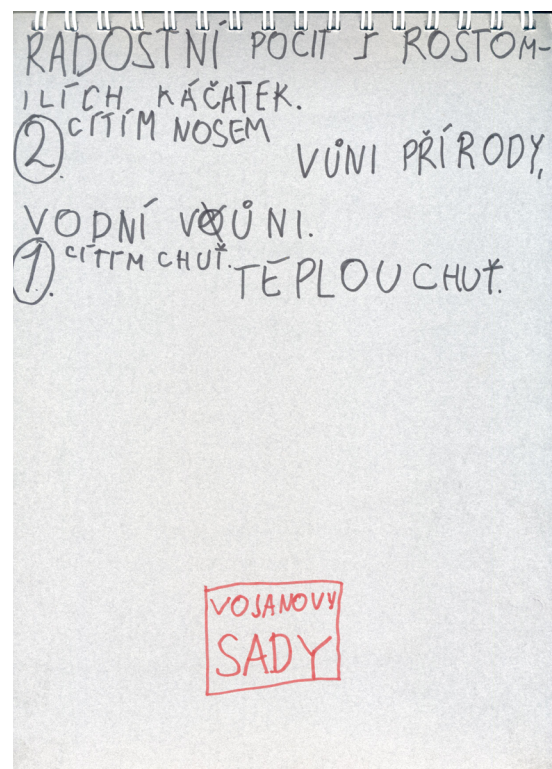 RADOSTNÍ POCIT S ROSTOM-
ILÍCH KÁČATEK.
2. CÍTÍM NOSEM
VŮNI PŘÍRODY,
VODNÍ VŮNI.
1. CÍTÍM CHUŤ. TEPLOU CHUŤ.
VOJANOVY
SADY